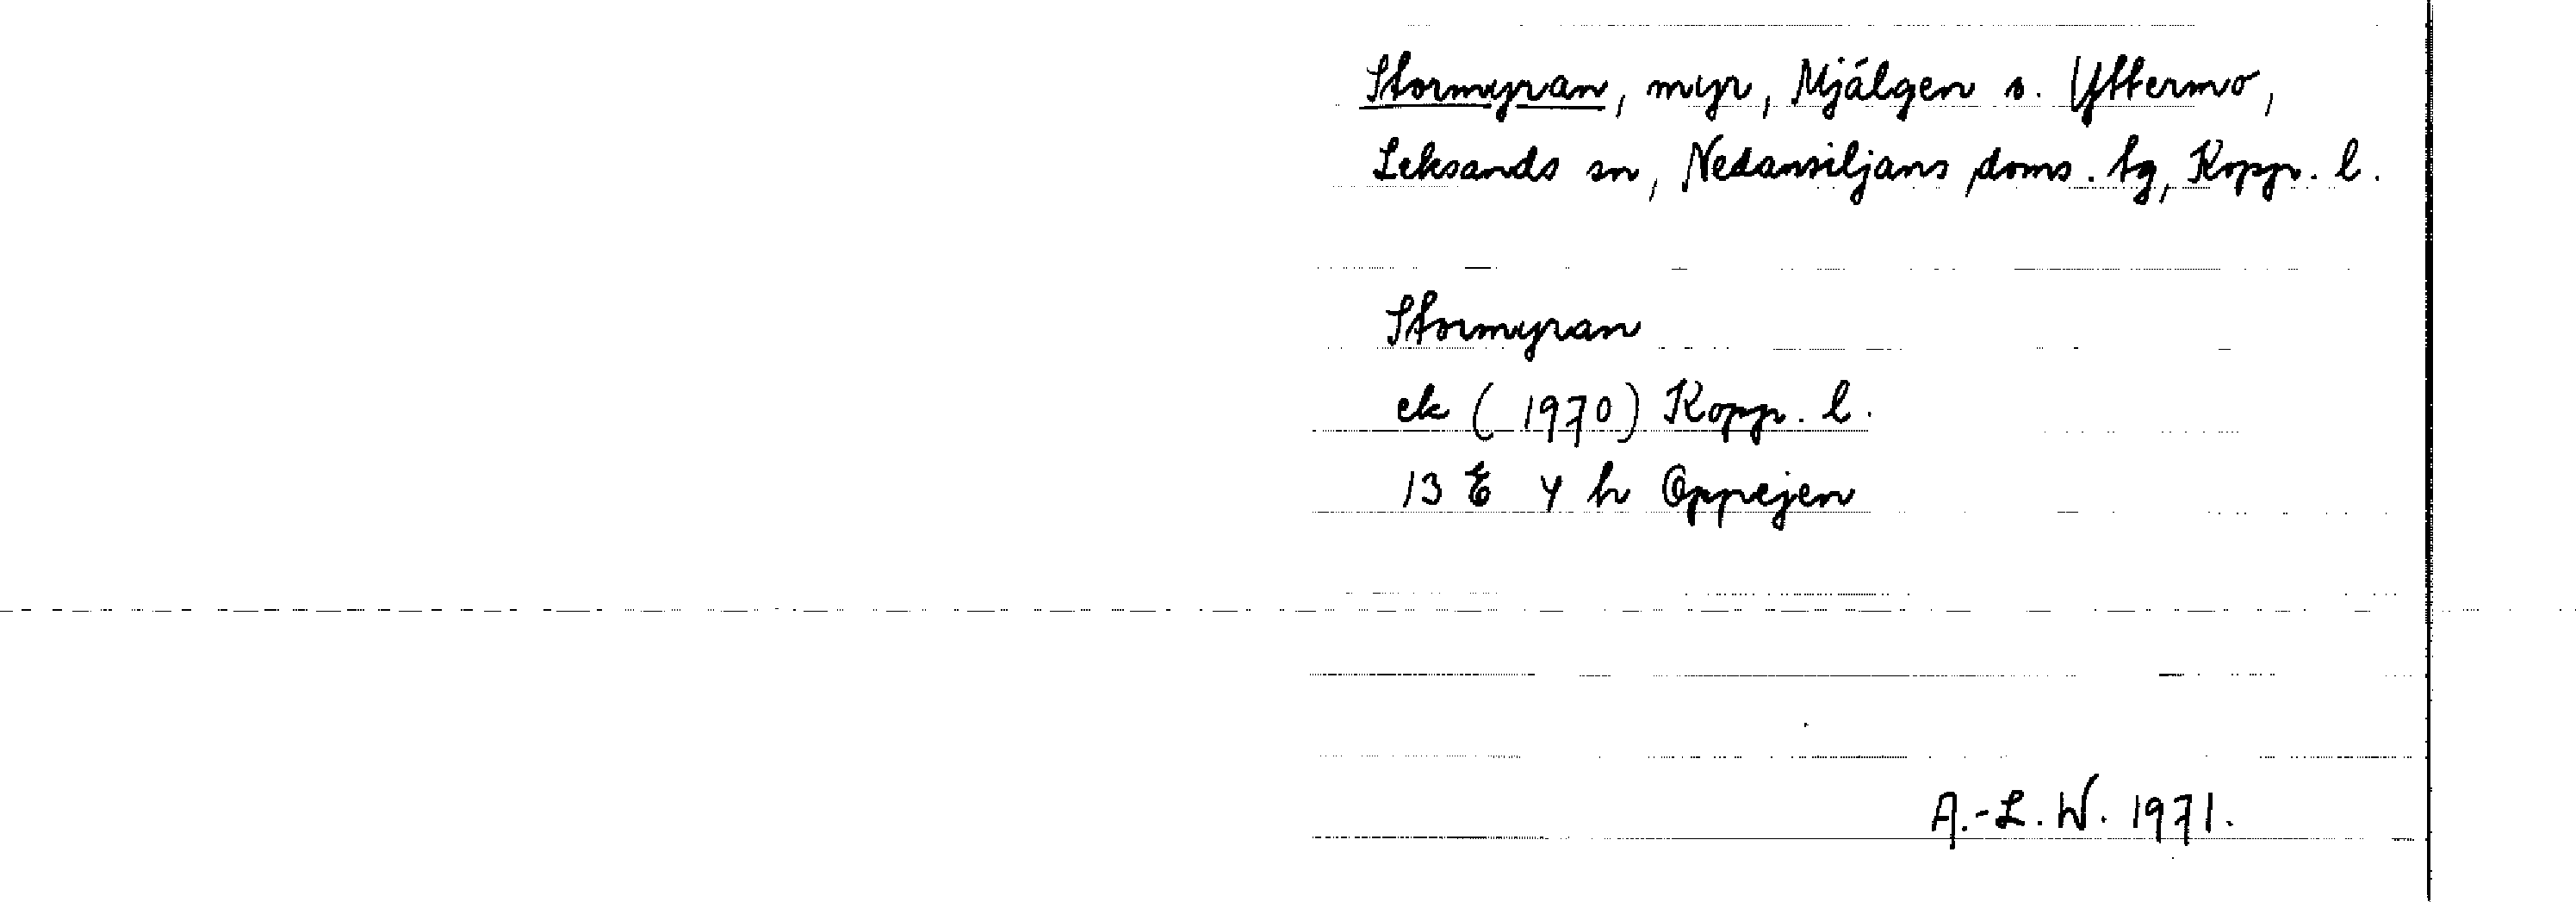 Stormyran, myr, Mjälgen o. Yttermo,
Leksands sn, Nedansiljans doms. tg, Kopp. l.
Stormyran
ek (1970) Kopp. l.
13 E 4 h Oppejen
A.-L. W. 1971.